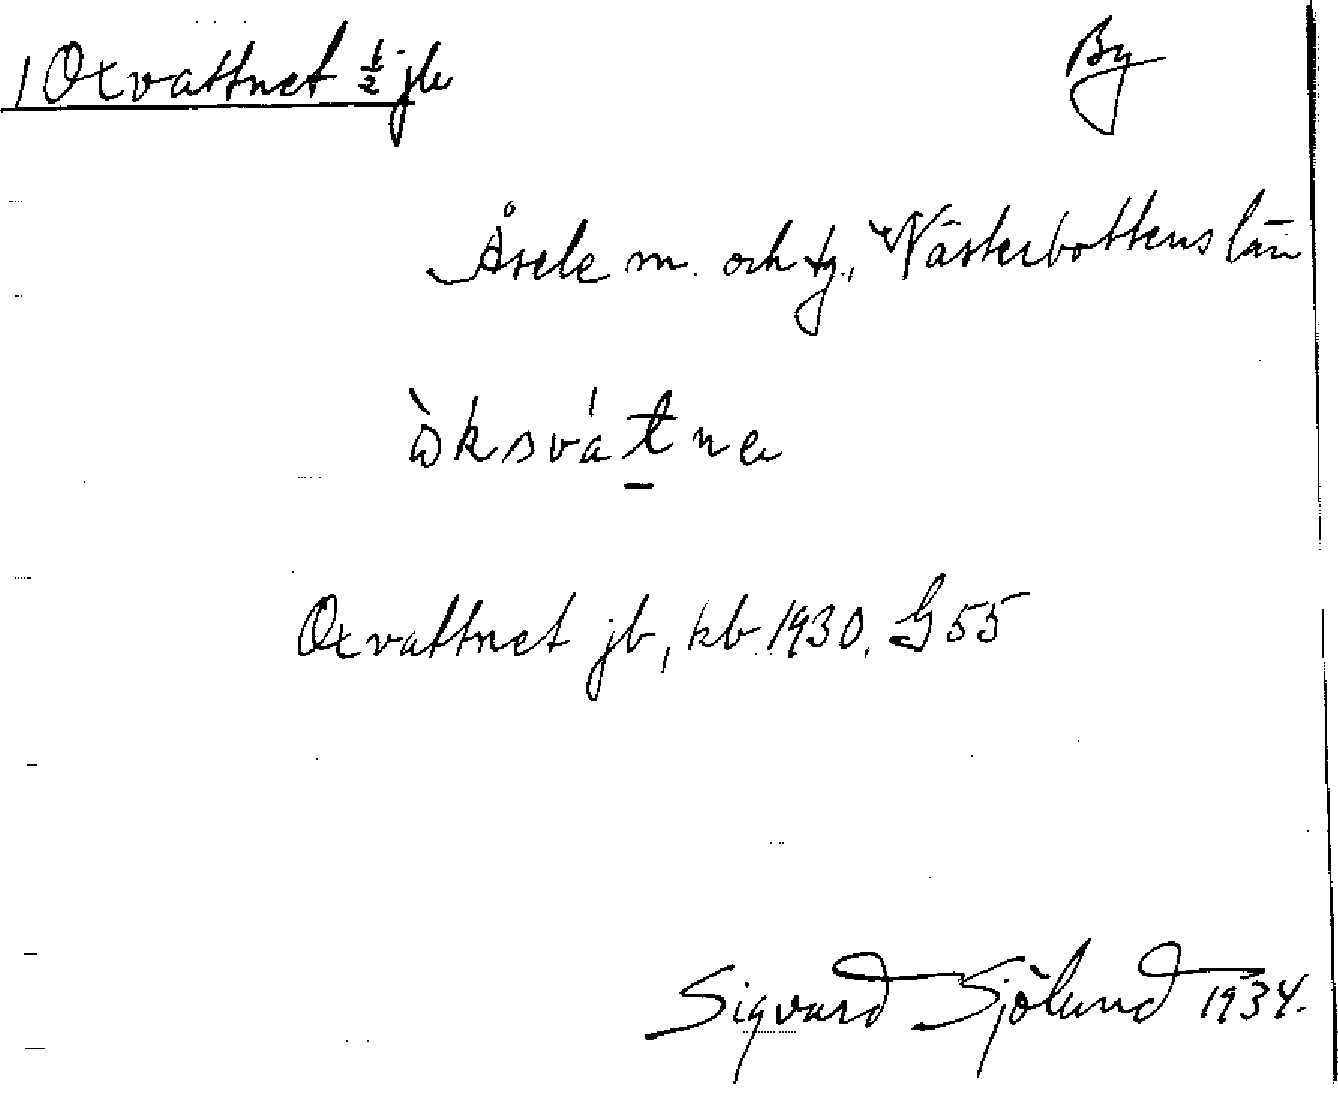 1 Oxvattnet ½ jb By
Åsele sn. och tg., Västerbottens län
òksvátne
Oxvattnet jb, kb. 1930, G 55
Sigvard Sjölund 1934.